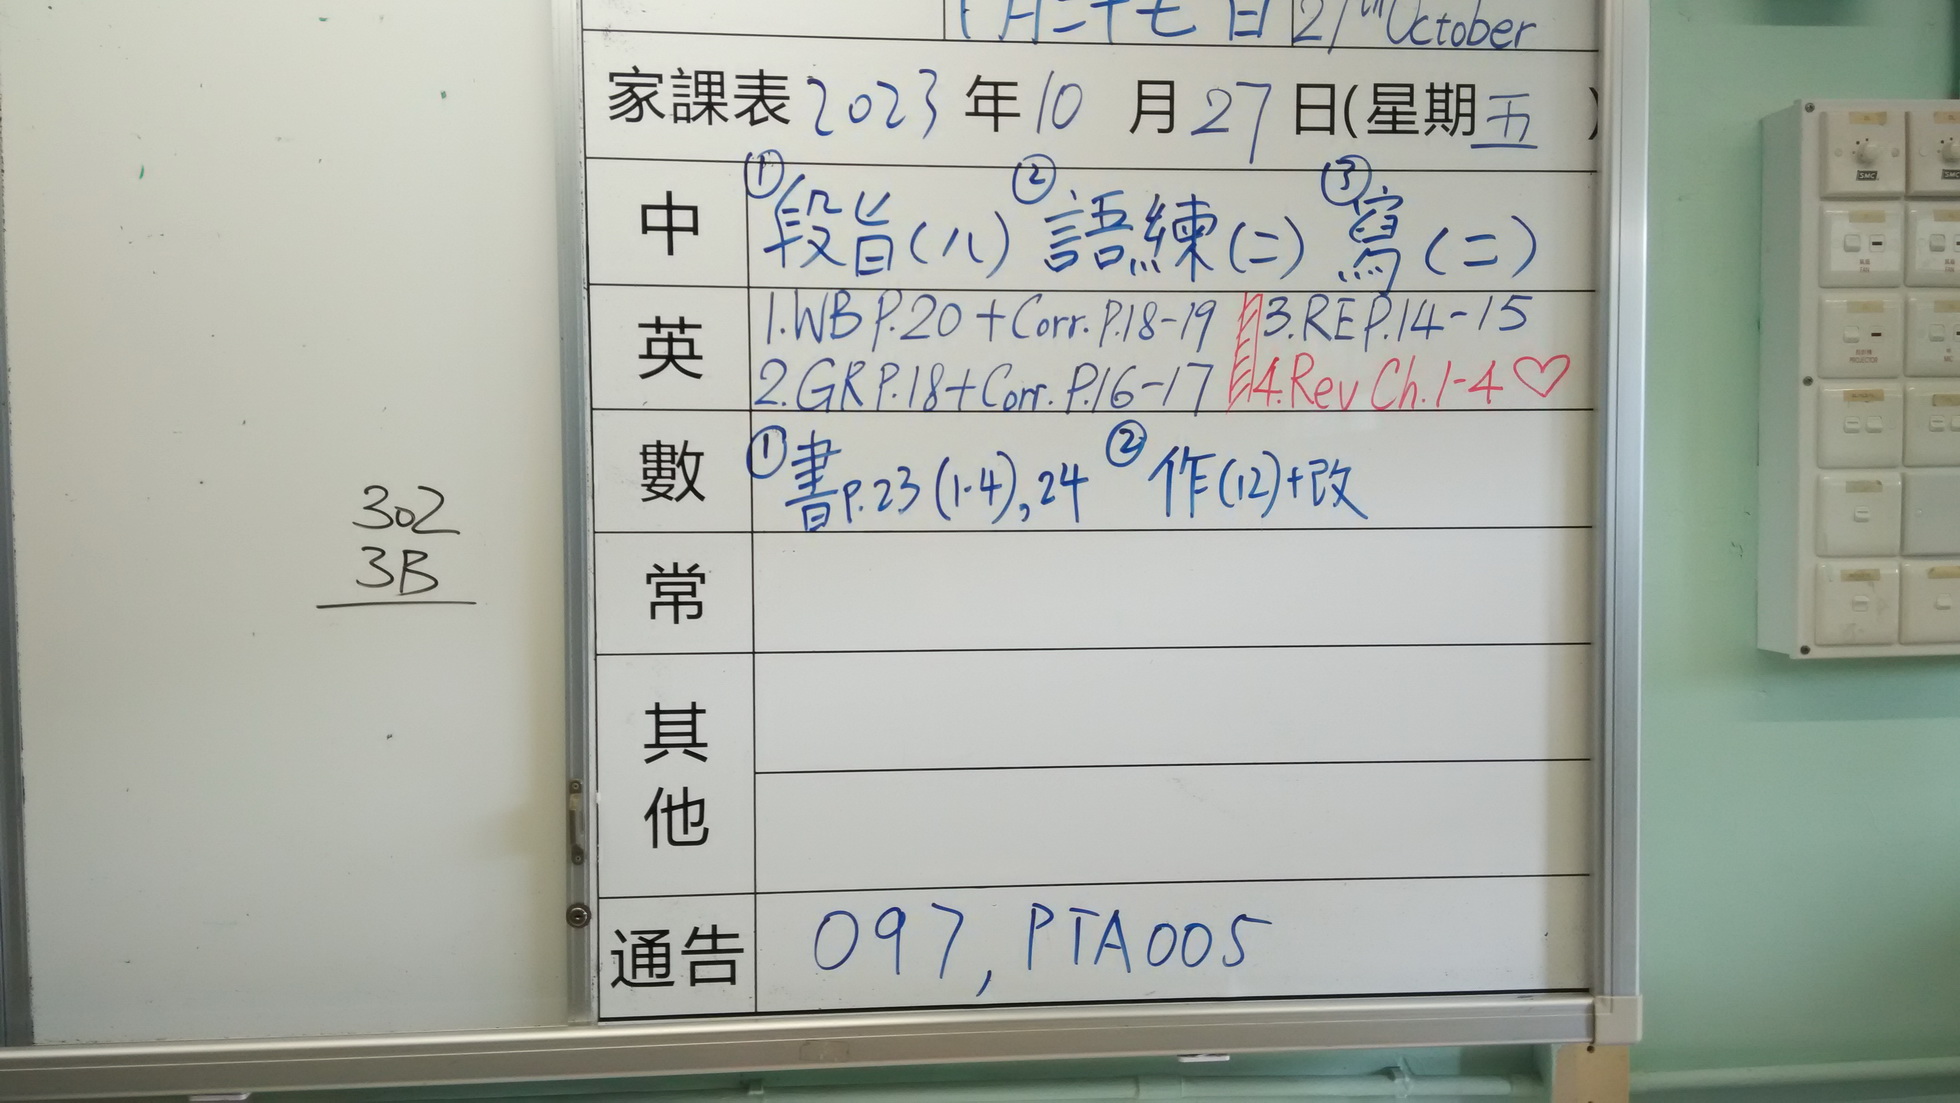 十月二十七日 27th October
家課表 2023 年 10 月 27 日(星期五)
中 ①段旨(八) ②語練(二) ③寫(二)
英 1.WB P.20 + Corr. P.18-19 3.RE P.14-15
2.GR P.18 + Corr. P.16-17 4.Rev Ch.1-4 ♡
數 ①書P.23 (1-4), 24 ②作(12)+改
302
3B
常
其他
通告 097, PTA005